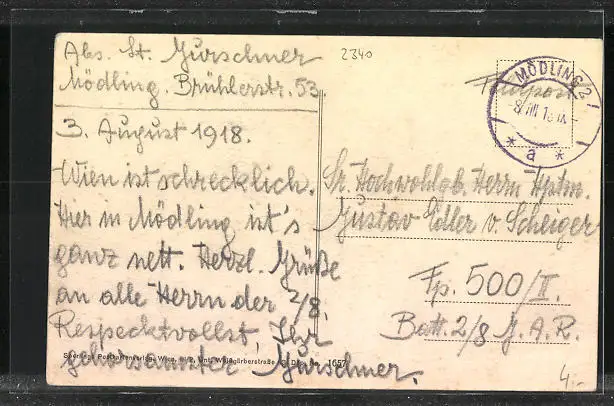 Abs. St. Gurschner
Mödling. Brühlerstr. 53.
3. August 1918.
Wien ist schrecklich.
Hier in Mödling ist's
ganz nett. Herzl. Grüße
an alle Herrn der 2/8.
Respecktvollst, Ihr
gehorsamster Gurschner.
Sperlings Postkartenverlag, Wien, III/2, Unt. Weißgärberstraße No. 1657
2340
Feldpost
MÖDLING 2
8 VIII 18 IX
* a *
Sr. Hochwohlgb. Herrn Hptm.
Gustav Edler v. Scheiger
Fp. 500/II.
Batt. 2/8 G. A. R.
4.-